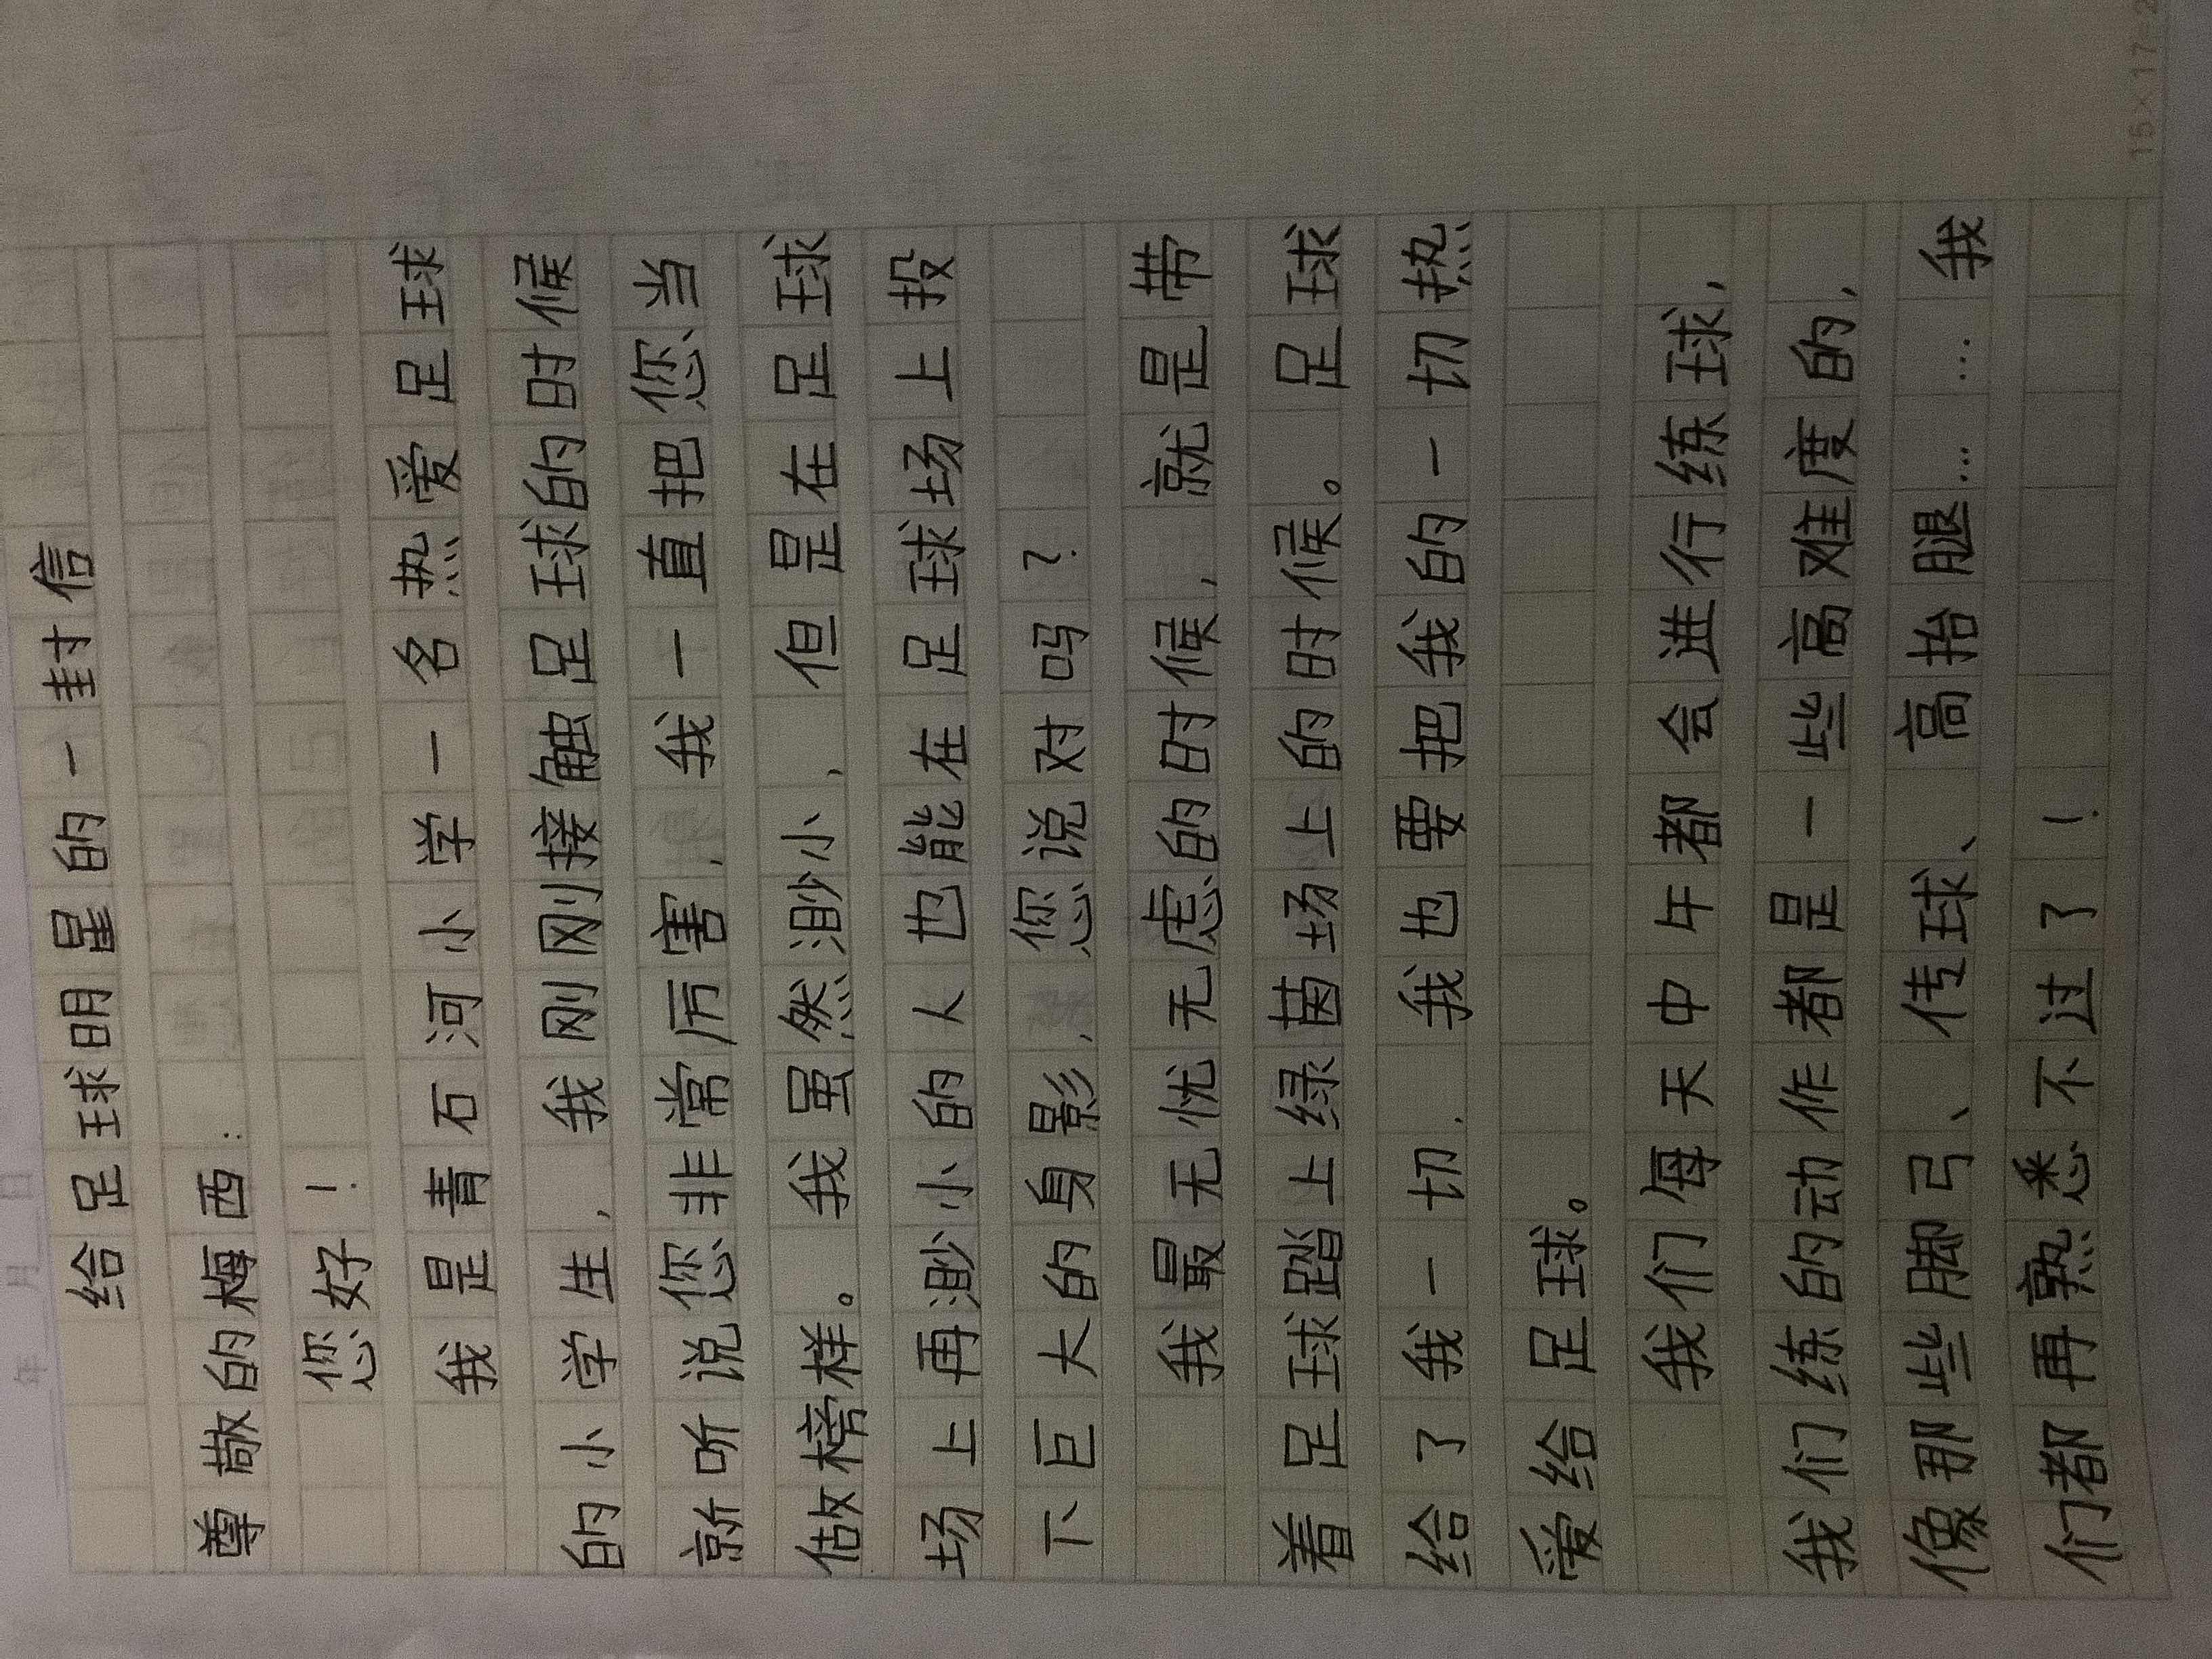 年 月 日
给足球明星的一封信
尊敬的梅西:
您好!
我是青石河小学一名热爱足球
的小学生,我刚刚接触足球的时候
就听说您非常厉害,我一直把您当
做榜样。我虽然渺小,但是在足球
场上再渺小的人也能在足球场上投
下巨大的身影,您说对吗?
我最无忧无虑的时候,就是带
着足球踏上绿茵场上的时候。足球
给了我一切,我也要把我的一切热
爱给足球。
我们每天中午都会进行练球,
我们练的动作都是一些高难度的,
像那些脚弓、传球、高抬腿……我
们都再熟悉不过了!